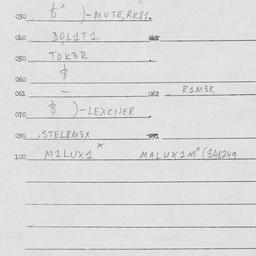 030 t* )-MUTE,RK81.
040 DOL1T1
050 TOK3R
$
060
061 - 062 R1M3R
070 $ )-LEXCIJER
090 ,STEL8M3X
100 M1LUX1* MALUX1M*($48249